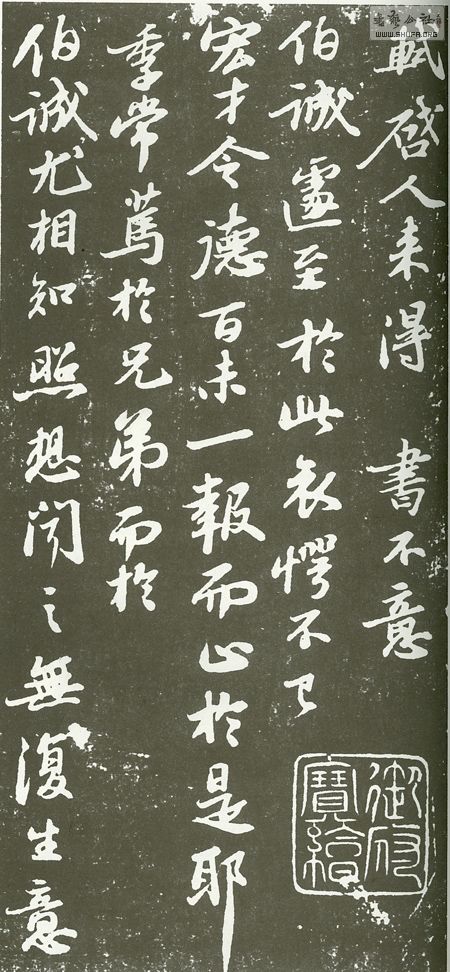 軾啓人来得 書不意
伯誠遽至於此哀愕不已
宏才令德百未一報而止於是耶
季常篤於兄弟而於
伯誠尤相知照想聞之無復生意
御府
寶繪
書藝公社
WWW.SHUFA.ORG